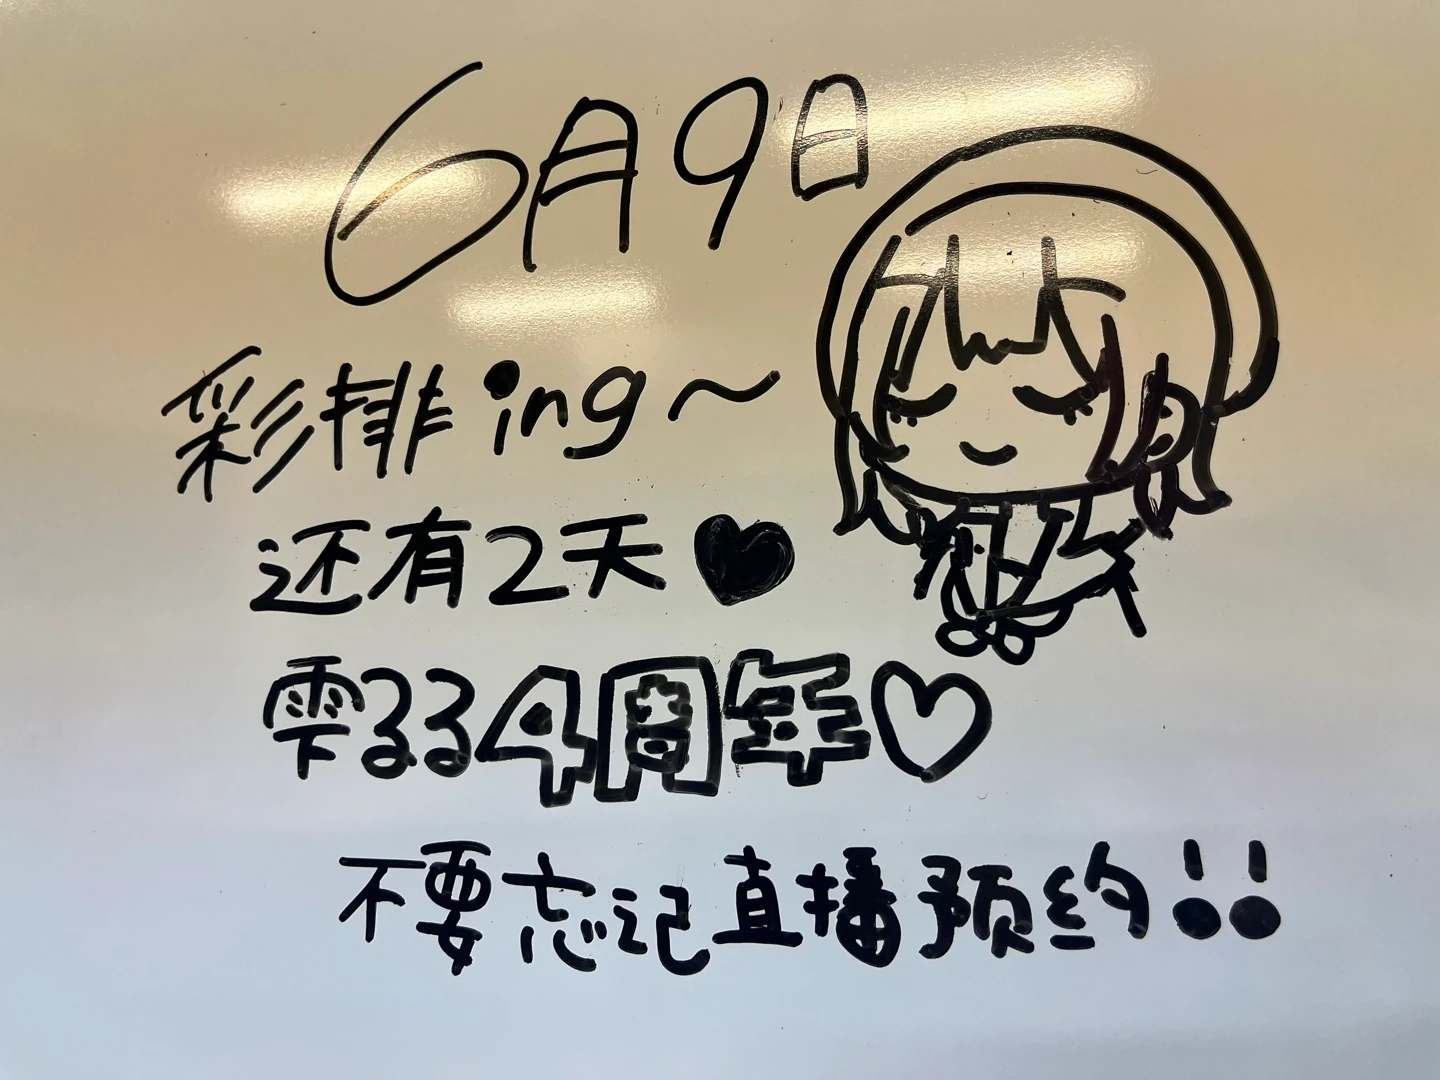 6月9日
彩排ing～
还有2天♥
雫るる4周年♡
不要忘记直播预约!!